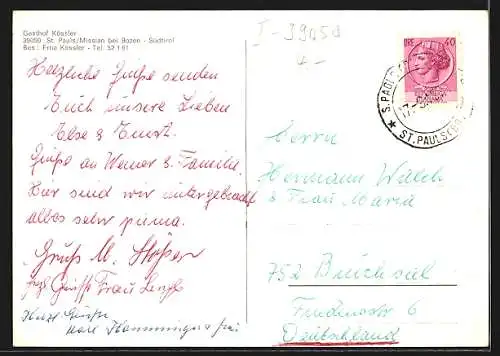 Gasthof Kössler
39050 St. Pauls/Missian bei Bozen - Südtirol
Bes.: Erna Kössler - Tel. 52 1 61
I-39050
4.-
Herzliche Grüße senden
Euch unsere Lieben
Else & Ernst.
Grüße an Werner & Familie.
Hier sind wir untergebracht
alles sehr prima.
Gruß M.
Grüße Frau
Herzl. Grüße
Karl
LIRE 40
S. PAOLO
17-9
ST. PAULS
Herrn
Hermann Walch
& Frau Maria
752 Bruchsal
6
Deutschland